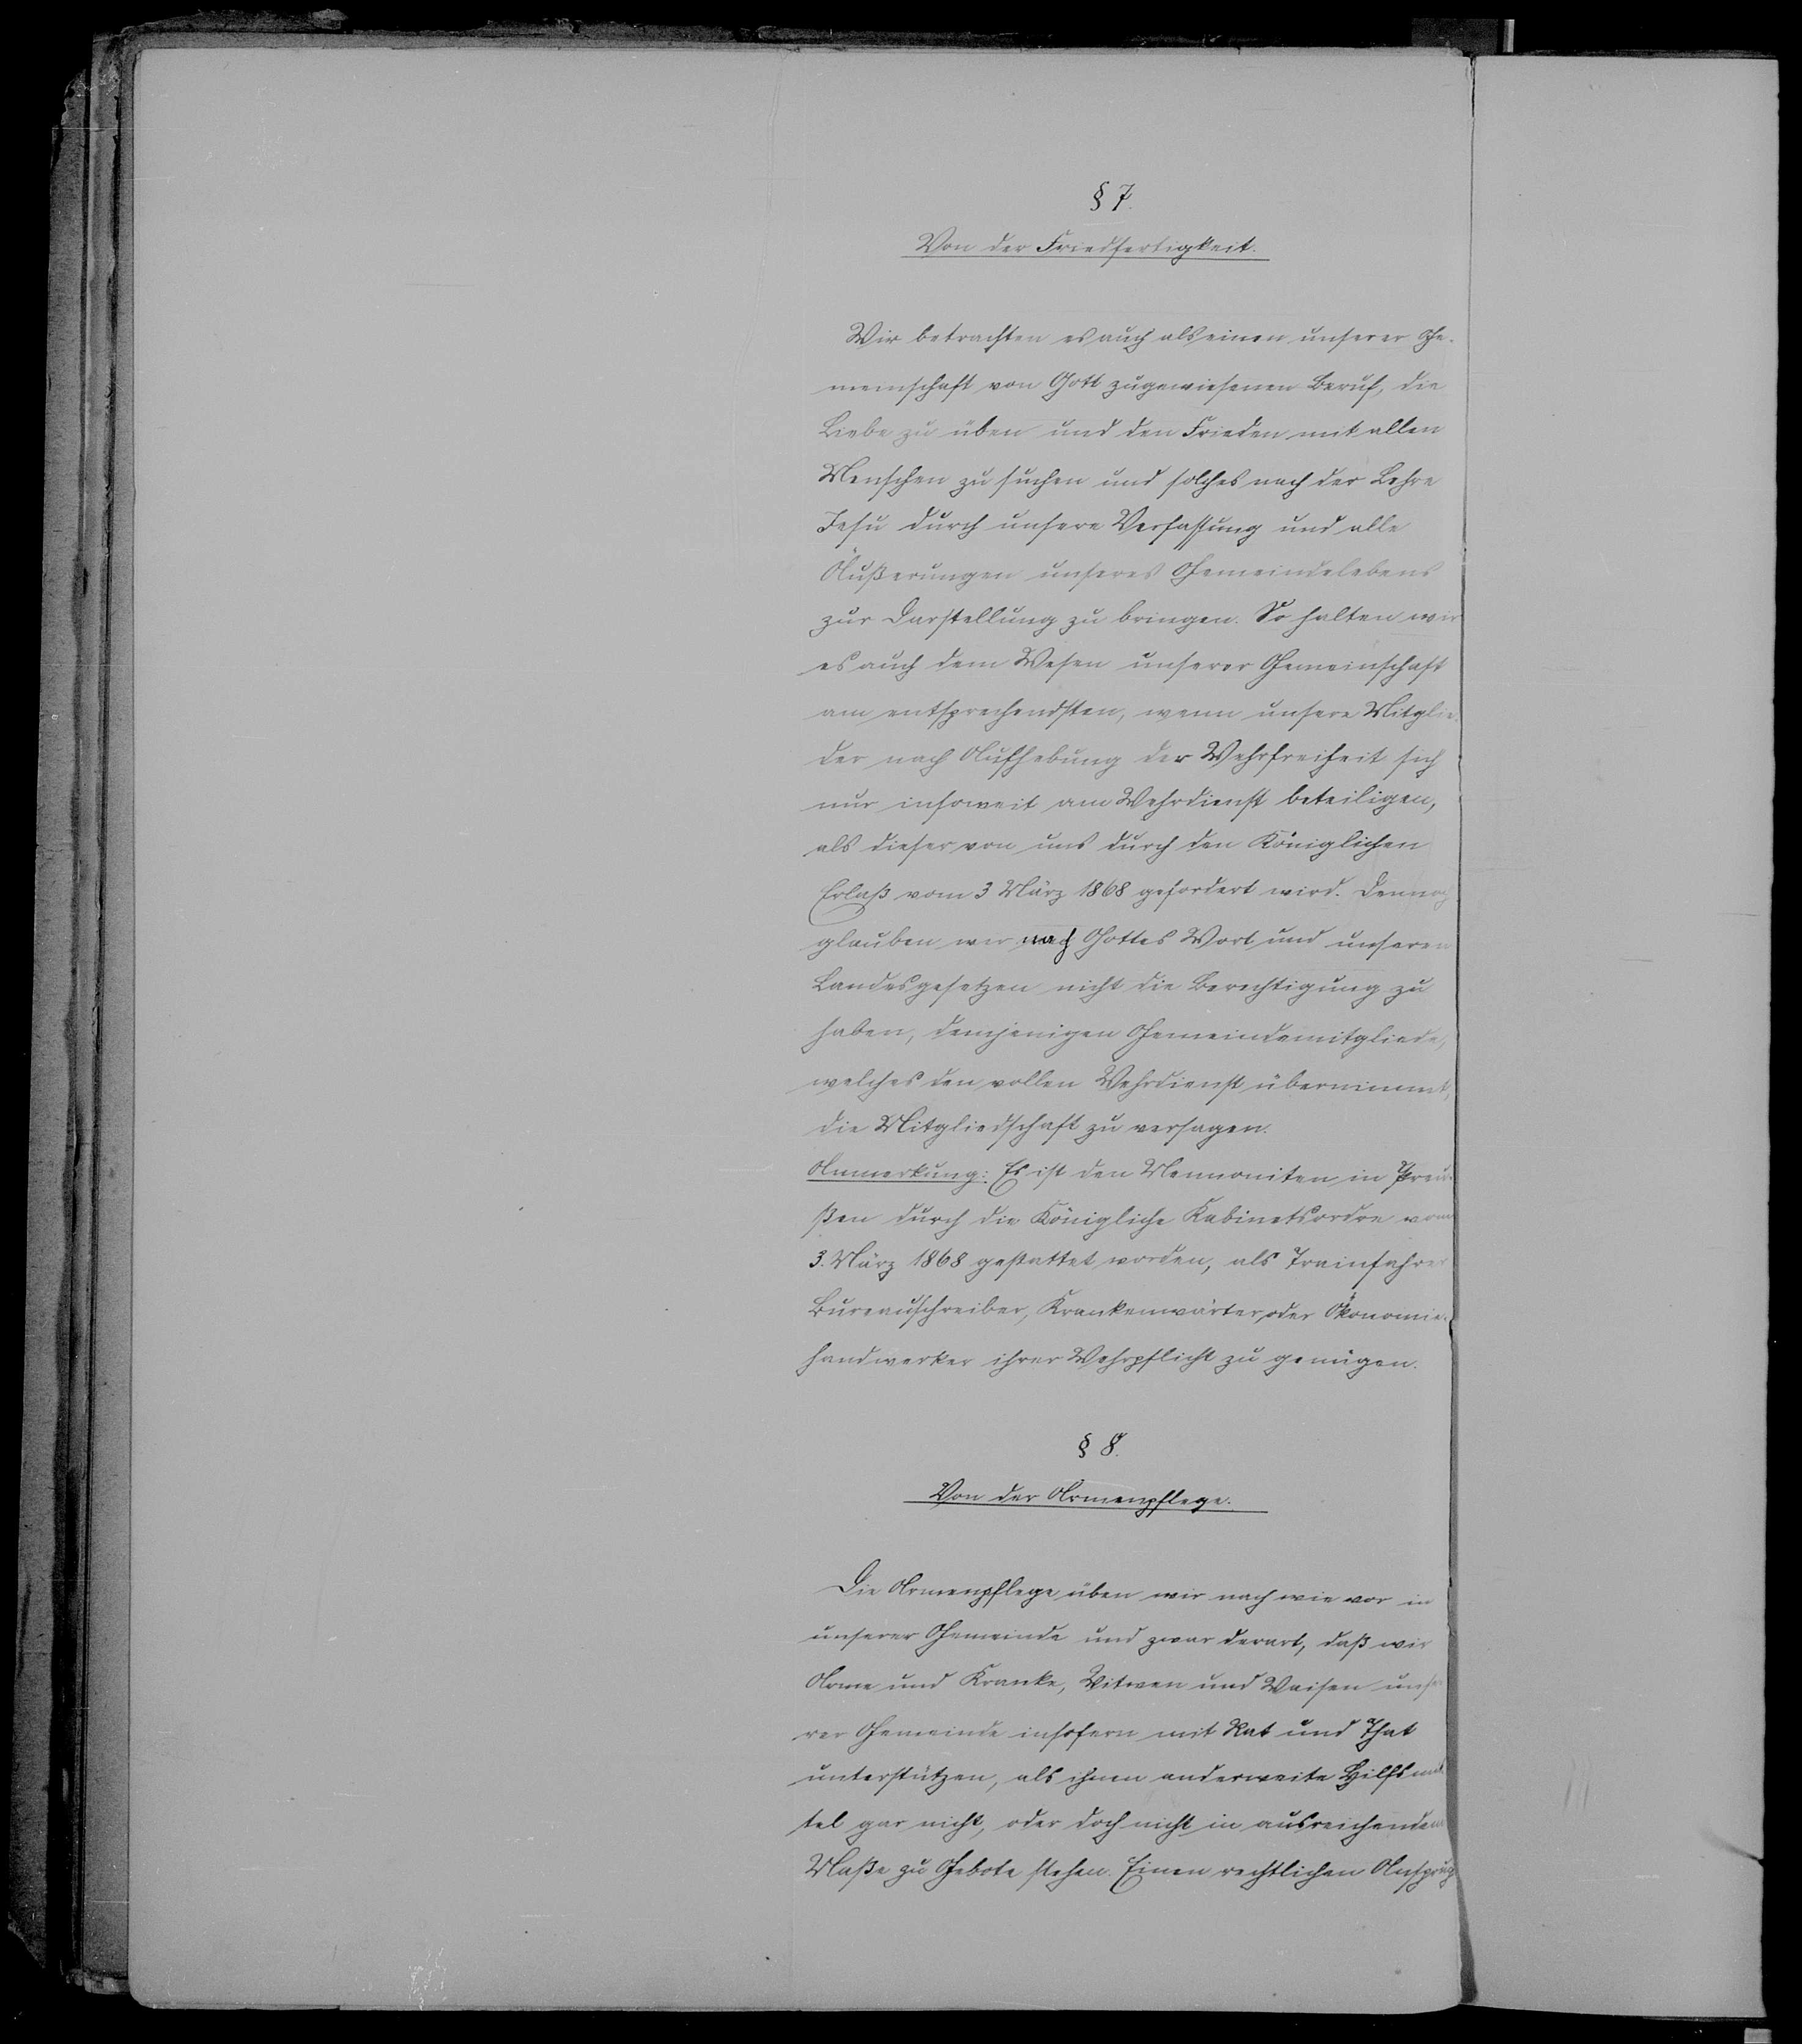 § 7.
Von der Friedfertigkeit.
Wir betrachten es auch als einen unserer Ge-
meinschaft von Gott zugewiesenen Beruf, die
Liebe zu üben und den Frieden mit allen
Menschen zu suchen und solches nach der Lehre
Jesu durch unsere Verfassung und alle
Äußerungen unseres Gemeindelebens
zur Darstellung zu bringen. So halten wir
es auch dem Wesen unserer Gemeinschaft
am entsprechendsten, wenn unsere Mitglie-
der nach Aufhebung der Wehrfreiheit sich
nur insoweit am Wehrdienst beteiligen,
als dieser von uns durch den Königlichen
Erlaß vom 3 März 1868 gefordert wird. Dennoch
glauben wir nach Gottes Wort und unseren
Landesgesetzen nicht die Berechtigung zu
haben, demjenigen Gemeindemitgliede,
welches den vollen Wehrdienst übernimmt,
die Mitgliedschaft zu versagen.
Anmerkung: Es ist den Mennoniten in Preu-
ßen durch die Königliche Kabinetsordre vom
3. März 1868 gestattet worden, als Trainfahrer
Bureauschreiber, Krankenwärter, oder Ökonomie-
handwerker ihrer Wehrpflicht zu genügen.
§ 8.
Von der Armenpflege.
Die Armenpflege üben wir nach wie vor in
unserer Gemeinde und zwar derart, daß wir
Arme und Kranke, Witwen und Waisen unse
rer Gemeinde insofern mit Rat und That
unterstützen, als ihnen anderweite Hilfsmit
tel gar nicht, oder doch nicht in ausreichendem
Maße zu Gebote stehen. Einen rechtlichen Anspruch